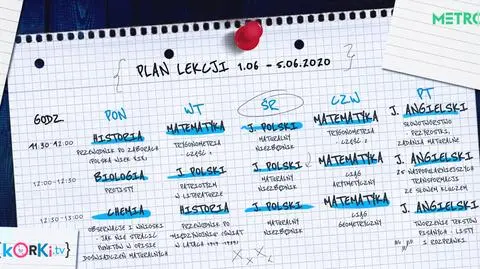 METRO
PLAN LEKCJI 1.06 - 5.06.2020
GODZ PON WT ŚR CZW PT
11:30-12:00
HISTORIA
PRZEWODNIK PO ZABORACH
(POLSKA WIEK XIX)
MATEMATYKA
TRYGONOMETRIA
CZĘŚĆ 1
J. POLSKI
MATURALNY
NIEZBĘDNIK
MATEMATYKA
TRYGONOMETRIA
CZĘŚĆ 2
J. ANGIELSKI
SŁOWOTWÓRSTWO
PRZEDROSTKI,
ZADANIA MATURALNE
12:00-12:30
BIOLOGIA
PROTISTY
J. POLSKI
PATRIOTYZM
W LITERATURZE
J. POLSKI
MATURALNY
NIEZBĘDNIK
MATEMATYKA
CIĄG
ARYTMETYCZNY
J. ANGIELSKI
25 NAJPOPULARNIEJSZYCH
TRANSFORMACJI
ZE SŁOWEM KLUCZEM
12:30-13:00
CHEMIA
OBSERWACJE I WNIOSKI
- JAK NIE STRACIĆ
PUNKTÓW W OPISIE
DOŚWIADCZEŃ MATURALNYCH
HISTORIA
PRZEWODNIK PO
MIĘDZYWOJNIE (ŚWIAT
W LATACH
J. POLSKI
MATURALNY
NIEZBĘDNIK
MATEMATYKA
CIĄG
GEOMETRYCZNY
J. ANGIELSKI
TWORZENIE TEKSTÓW
PISANIA - LISTY
I ROZPRAWKI
{KORKI.tv}